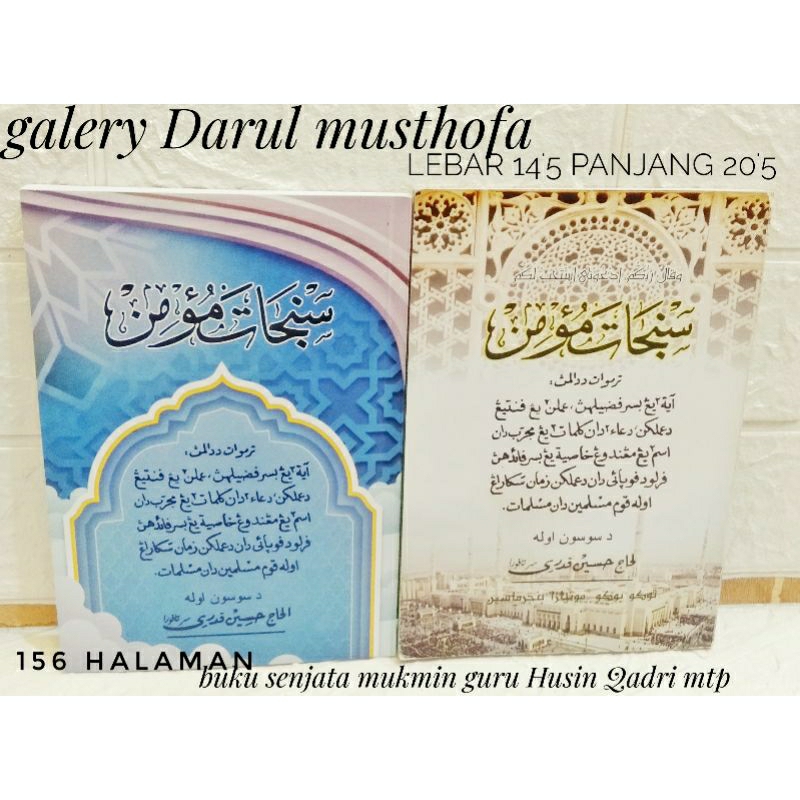 galery Darul musthofa
LEBAR 14'5 PANJANG 20'5
سنجات مؤمن
ترموات ددالمڽ:
آية٢ يڠ بسر فضيلهڽ، عملن٢ يڠ فنتيڠ
دعملكن، دعاء٢ دان كلمات٢ يڠ مجرب دان
اسم٢ يڠ مڠندوڠ خاصية يڠ بسر فائدهڽ
فرلو دفوپائي دان دعملكن زمان سكارڠ
اوله قوم مسلمين دان مسلمات.
د سوسون اوله
الحاج حسين قدري
وقال ربكم ادعوني استجب لكم
سنجات مؤمن
ترموات ددالمڽ:
آية٢ يڠ بسر فضيلهڽ، عملن٢ يڠ فنتيڠ
دعملكن، دعاء٢ دان كلمات٢ يڠ مجرب دان
اسم٢ يڠ مڠندوڠ خاصية يڠ بسر فائدهڽ
فرلو دفوپائي دان دعملكن زمان سكارڠ
اوله قوم مسلمين دان مسلمات.
د سوسون اوله
الحاج حسين قدري
توكو بوكو
156 HALAMAN
buku senjata mukmin guru Husin Qadri mtp